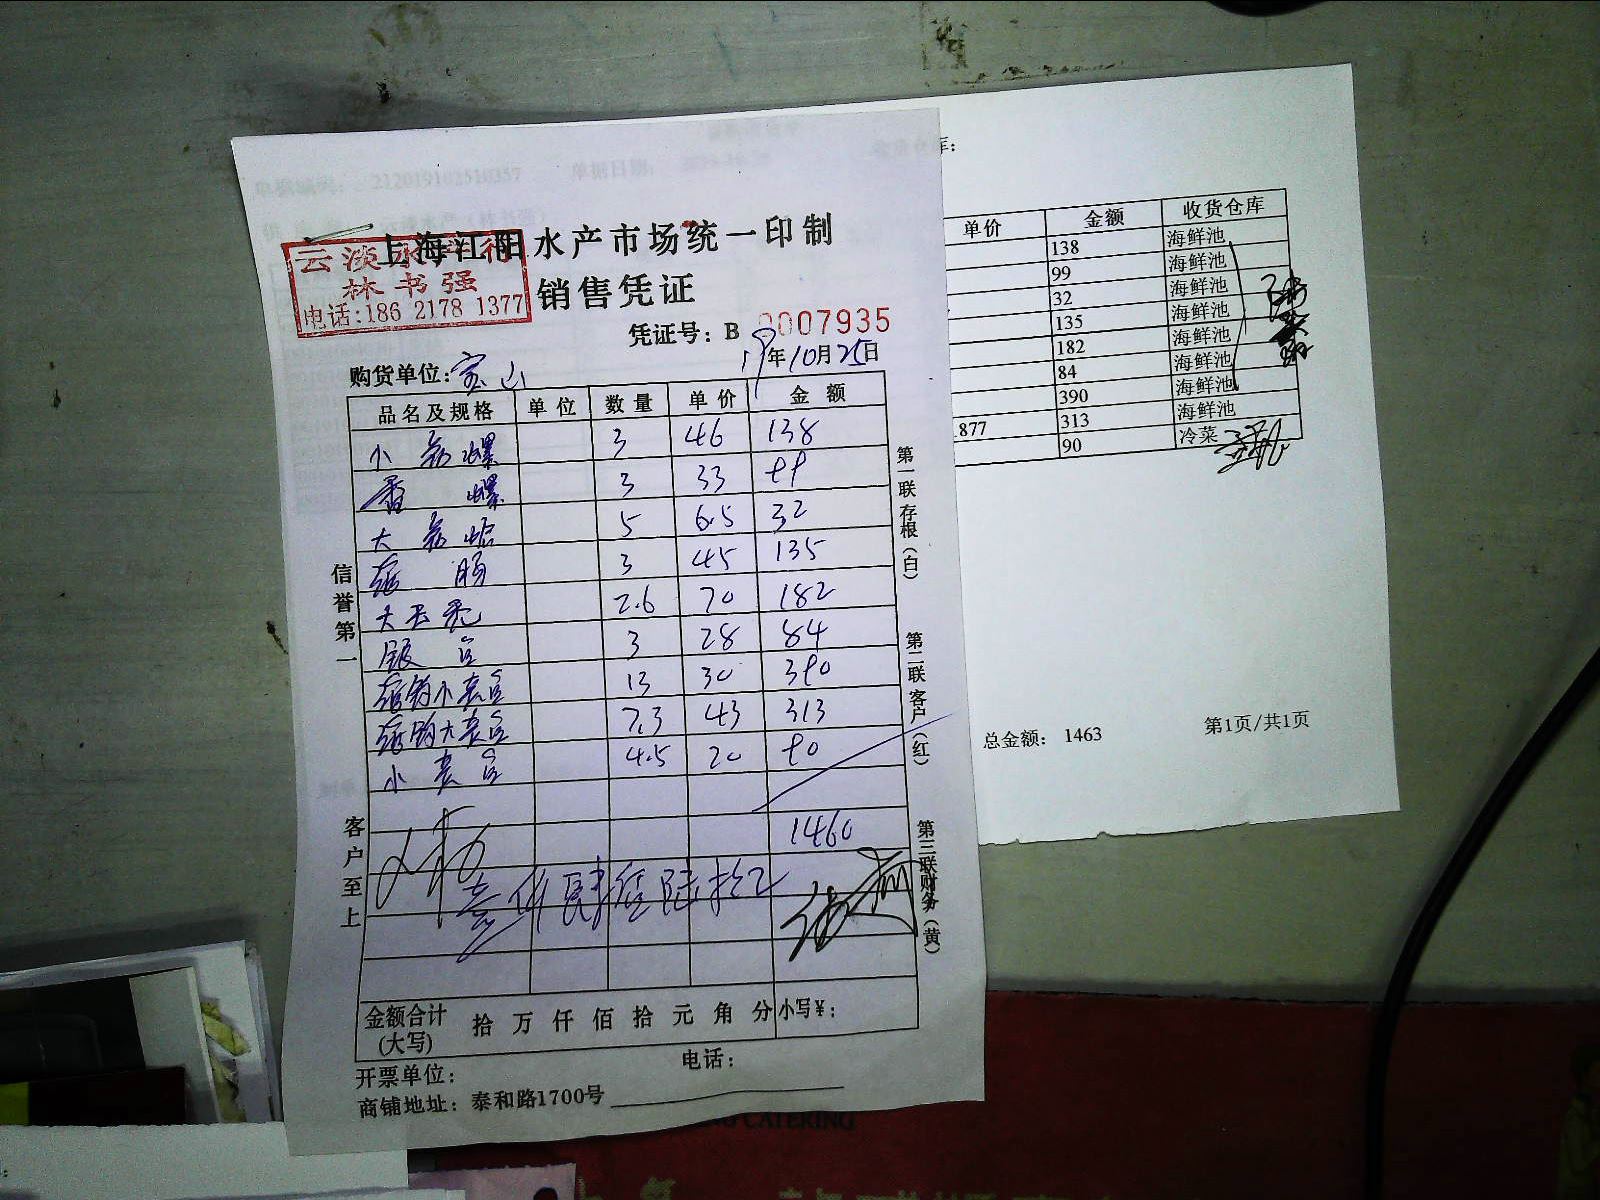 上海江阳水产市场统一印制
云淡水产行
林书强
电话:186 2178 1377
销售凭证
凭证号：B 0007935
购货单位:宝山
19年10月25日
品名及规格 单位 数量 单价 金额
小 螺 3 46 138
香 螺 3 33 99
大 蛤 5 6.5 32
肠 3 45 135
大 2.6 70 182
3 28 84
小 13 30 390
大 7.3 43 313
小 4.5 20 90
1460
壹仟肆佰陆拾元
金额合计 拾 万 仟 佰 拾 元 角 分 小写¥：
(大写)
开票单位：
电话：
商铺地址：泰和路1700号
信誉第一
客户至上
第一联存根（白）
第二联客户（红）
第三联财务（黄）
212019102510357
单据日期：
库:
单价 金额 收货仓库
138 海鲜池
99 海鲜池
32 海鲜池
135 海鲜池
182 海鲜池
84 海鲜池
390 海鲜池
877 313 海鲜池
90 冷菜
总金额： 1463
第1页/共1页
CATERING